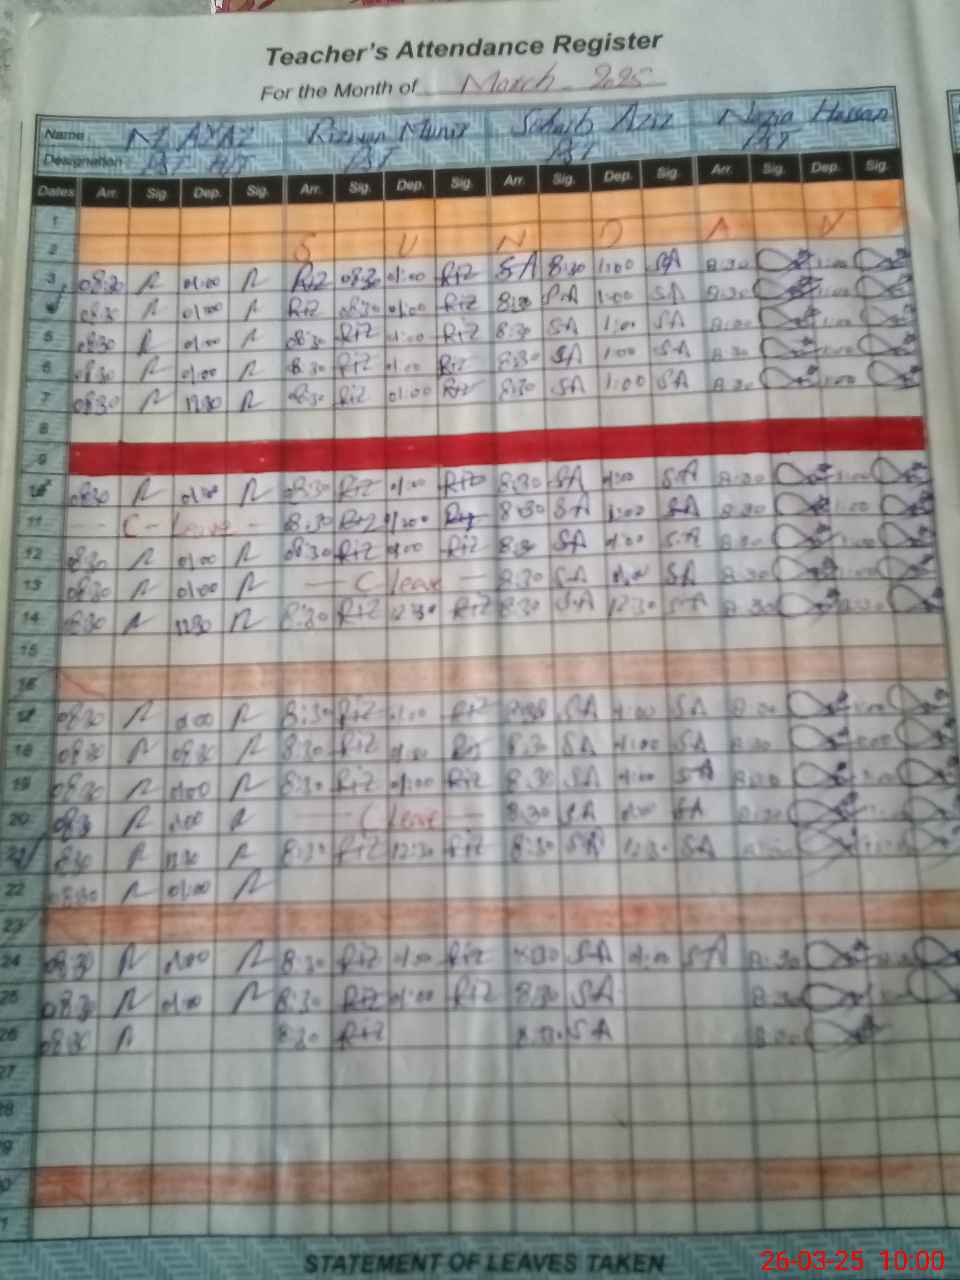 Teacher's Attendance Register
For the Month of March 2025
Name M. AYAZ Rizwan Munir Suhaib Aziz Nazia Hassan
Designation PST HT PST PST PST
Dates Arr. Sig. Dep. Sig. Arr. Sig. Dep. Sig. Arr. Sig. Dep. Sig. Arr. Sig. Dep. Sig.
1
2 S U N D A Y
3 08:30 01:00 Riz 08:30 01:00 Riz SA 8:30 1:00 SA 8:30 1:00
08:30 01:00 Riz 08:30 01:00 Riz 8:30 SA 1:00 SA 8:30 1:00
5 08:30 01:00 08:30 Riz 01:00 Riz 8:30 SA 1:00 SA 8:30 1:00
6 08:30 01:00 8:30 Riz 01:00 Riz 8:30 SA 1:00 SA 8:30 1:00
7 08:30 12:30 08:30 Riz 01:00 Riz 8:30 SA 1:00 SA 8:30 1:00
8
9
10 08:30 01:00 08:30 Riz 01:00 Riz 8:30 SA 1:00 SA 8:30 1:00
11 C-Leave 8:30 Riz 01:00 Riz 8:30 SA 1:00 SA 8:30 1:00
12 08:30 01:00 08:30 Riz 01:00 Riz 8:30 SA 01:00 SA 8:30
13 08:30 01:00 C leave 8:30 SA 01:00 SA 8:30
14 08:30 12:30 8:30 Riz 12:30 Riz 8:30 SA 12:30 SA 8:30
15
16
17 08:30 01:00 8:30 Riz 01:00 Riz SA 01:00 SA 8:30
18 08:30 08:30 8:30 Riz Riz 8:30 SA 01:00 SA 8:30
19 08:30 01:00 8:30 Riz 01:00 Riz 8:30 SA 01:00 SA 8:30
20 08:30 1:00 C leave 8:30 SA 01:00 SA 8:30
21 8:30 12:30 8:30 Riz 12:30 Riz 8:30 SA 12:30 SA
22 08:30 01:00
23
24 08:30 01:00 8:30 Riz 01:00 Riz SA 01:00 SA 8:30
25 08:30 01:00 8:30 Riz 01:00 Riz 8:30 SA 8:30
26 08:30 8:30 Riz 8:30 SA 8:30
27
28
29
STATEMENT OF LEAVES TAKEN
26-03-25 10:00